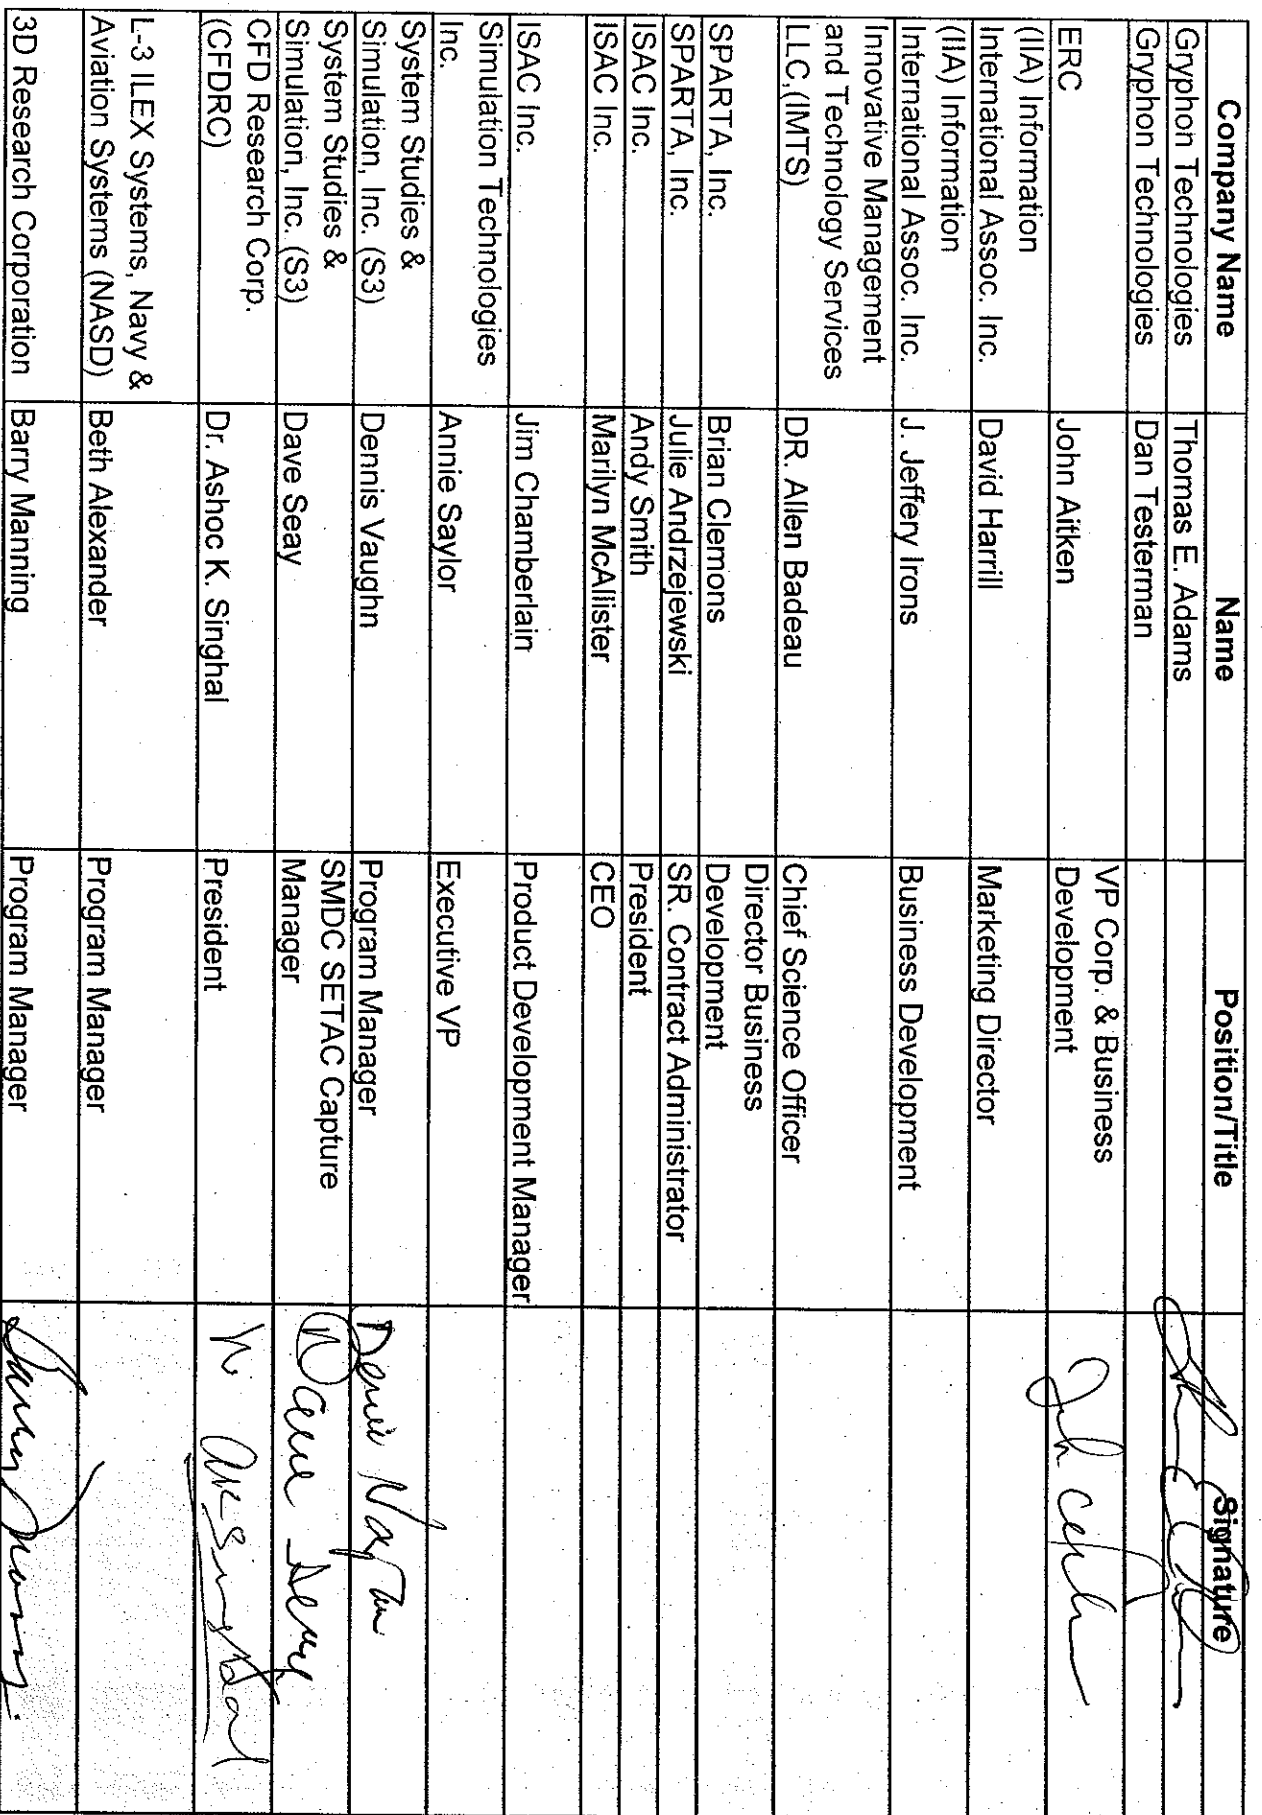 Company Name Name Position/Title Signature
Gryphon Technologies Thomas E. Adams
Gryphon Technologies Dan Testerman
VP Corp. & Business
ERC John Aitken Development
(IIA) Information
International Assoc. Inc. David Harrill Marketing Director
(IIA) Information
International Assoc. Inc. J. Jeffery Irons Business Development
Innovative Management
and Technology Services
LLC,(IMTS) DR. Allen Badeau Chief Science Officer
Director Business
SPARTA, Inc. Brian Clemons Development
SPARTA, Inc. Julie Andrzejewski SR. Contract Administrator
ISAC Inc. Andy Smith President
ISAC Inc. Marilyn McAllister CEO
ISAC Inc. Jim Chamberlain Product Development Manager
Simulation Technologies
Inc. Annie Saylor Executive VP
System Studies &
Simulation, Inc. (S3) Dennis Vaughn Program Manager
System Studies & SMDC SETAC Capture
Simulation, Inc. (S3) Dave Seay Manager
CFD Research Corp.
(CFDRC) Dr. Ashoc K. Singhal President
L-3 ILEX Systems, Navy &
Aviation Systems (NASD) Beth Alexander Program Manager
3D Research Corporation Barry Manning Program Manager